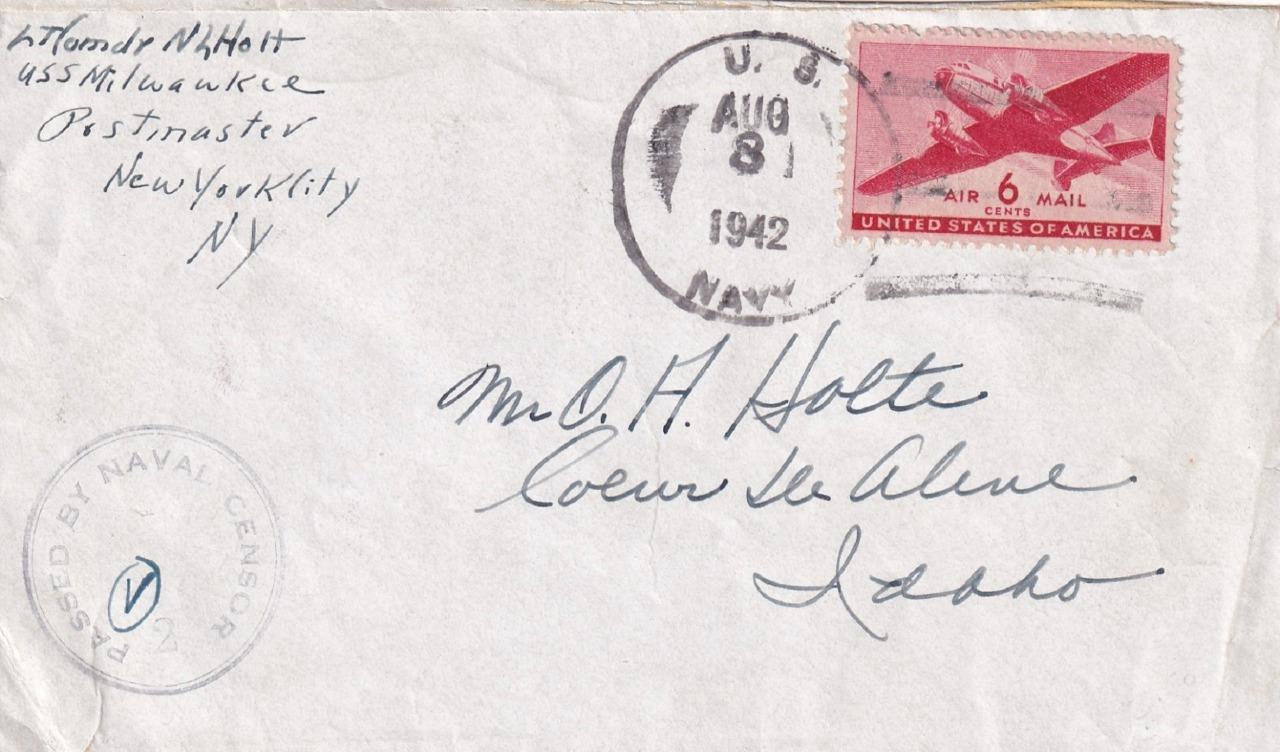 Lt Comdr N L Holt
USS Milwaukee
Postmaster
New York City
NY
U. S.
AUG
8
1942
NAVY
AIR 6 MAIL
CENTS
UNITED STATES OF AMERICA
Mr O. H. Holte
Coeur de Alene
Idaho
PASSED BY NAVAL CENSOR
V
2